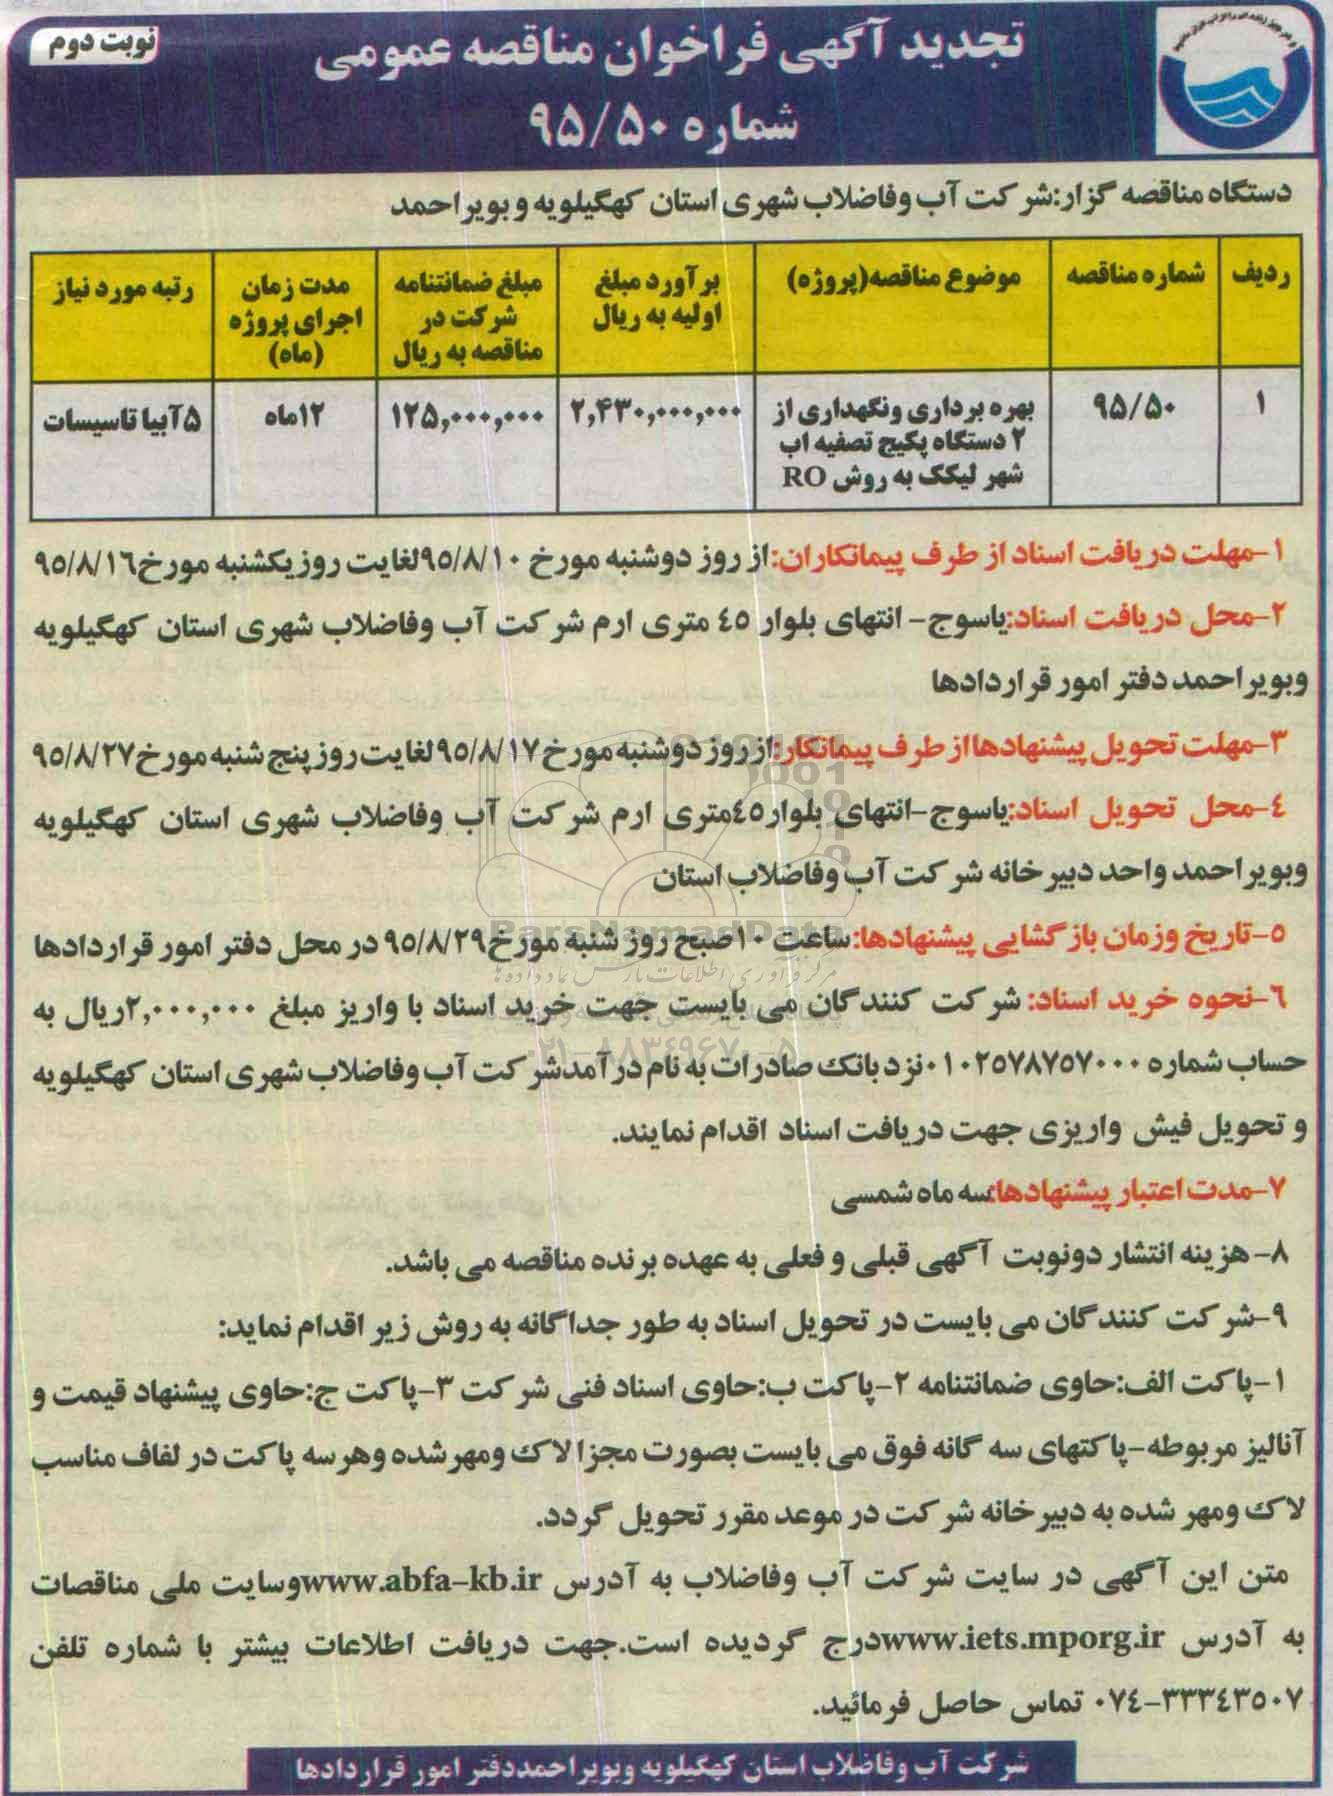 نوبت دوم
تجدید آگهی فراخوان مناقصه عمومی
شماره ۹۵/۵۰
دستگاه مناقصه گزار:شرکت آب وفاضلاب شهری استان کهگیلویه وبویراحمد
ردیف	شماره مناقصه	موضوع مناقصه(پروژه)	برآورد مبلغ اولیه به ریال	مبلغ ضمانتنامه شرکت در مناقصه به ریال	مدت زمان اجرای پروژه (ماه)	رتبه مورد نیاز
۱	۹۵/۵۰	بهره برداری ونگهداری از ۲ دستگاه پکیج تصفیه اب شهر لیکک به روش RO	۲,۴۳۰,۰۰۰,۰۰۰	۱۲۵,۰۰۰,۰۰۰	۱۲ماه	۵آبیا تاسیسات
۱-مهلت دریافت اسناد از طرف پیمانکاران:از روز دوشنبه مورخ ۹۵/۸/۱۰لغایت روزیکشنبه مورخ۹۵/۸/۱۶
۲-محل دریافت اسناد:یاسوج- انتهای بلوار ٤٥ متری ارم شرکت آب وفاضلاب شهری استان کهگیلویه
وبویراحمد دفتر امور قراردادها
۳-مهلت تحویل پیشنهادهااز طرف پیمانکار:ازروز دوشنبه مورخ۹۵/۸/۱۷لغایت روز پنج شنبه مورخ۹۵/۸/۲۷
٤-محل تحویل اسناد:یاسوج-انتهای بلوار٤٥متری ارم شرکت آب وفاضلاب شهری استان کهگیلویه
وبویراحمد واحد دبیرخانه شرکت آب وفاضلاب استان
۵-تاریخ وزمان بازگشایی پیشنهادها:ساعت ۱۰صبح روز شنبه مورخ۹۵/۸/۲۹ در محل دفتر امور قراردادها
۶-نحوه خرید اسناد: شرکت کنندگان می بایست جهت خرید اسناد با واریز مبلغ ۲,۰۰۰,۰۰۰ریال به
حساب شماره ۰۱۰۲۵۷۸۷۵۷۰۰۰نزد بانک صادرات به نام درآمدشرکت آب وفاضلاب شهری استان کهگیلویه
و تحویل فیش واریزی جهت دریافت اسناد اقدام نمایند.
۷-مدت اعتبار پیشنهادها:سه ماه شمسی
۸- هزینه انتشار دونوبت آگهی قبلی و فعلی به عهده برنده مناقصه می باشد.
۹-شرکت کنندگان می بایست در تحویل اسناد به طور جداگانه به روش زیر اقدام نماید:
۱-پاکت الف:حاوی ضمانتنامه ۲-پاکت ب:حاوی اسناد فنی شرکت ۳-پاکت ج:حاوی پیشنهاد قیمت و
آنالیز مربوطه-پاکتهای سه گانه فوق می بایست بصورت مجزا لاک ومهرشده وهرسه پاکت در لفاف مناسب
لاک ومهر شده به دبیرخانه شرکت در موعد مقرر تحویل گردد.
متن این آگهی در سایت شرکت آب وفاضلاب به آدرس www.abfa-kb.irوسایت ملی مناقصات
به آدرس www.iets.mporg.irدرج گردیده است.جهت دریافت اطلاعات بیشتر با شماره تلفن
۰۷٤-۳۳۳٤۳۵۰۷ تماس حاصل فرمائید.
شرکت آب وفاضلاب استان کهگیلویه وبویراحمددفتر امور قراردادها
ParsNamadData
مرکز فرآوری اطلاعات پارس نماد داده ها
۰۲۱-۸۸۳٤۹۶۷۰-۵